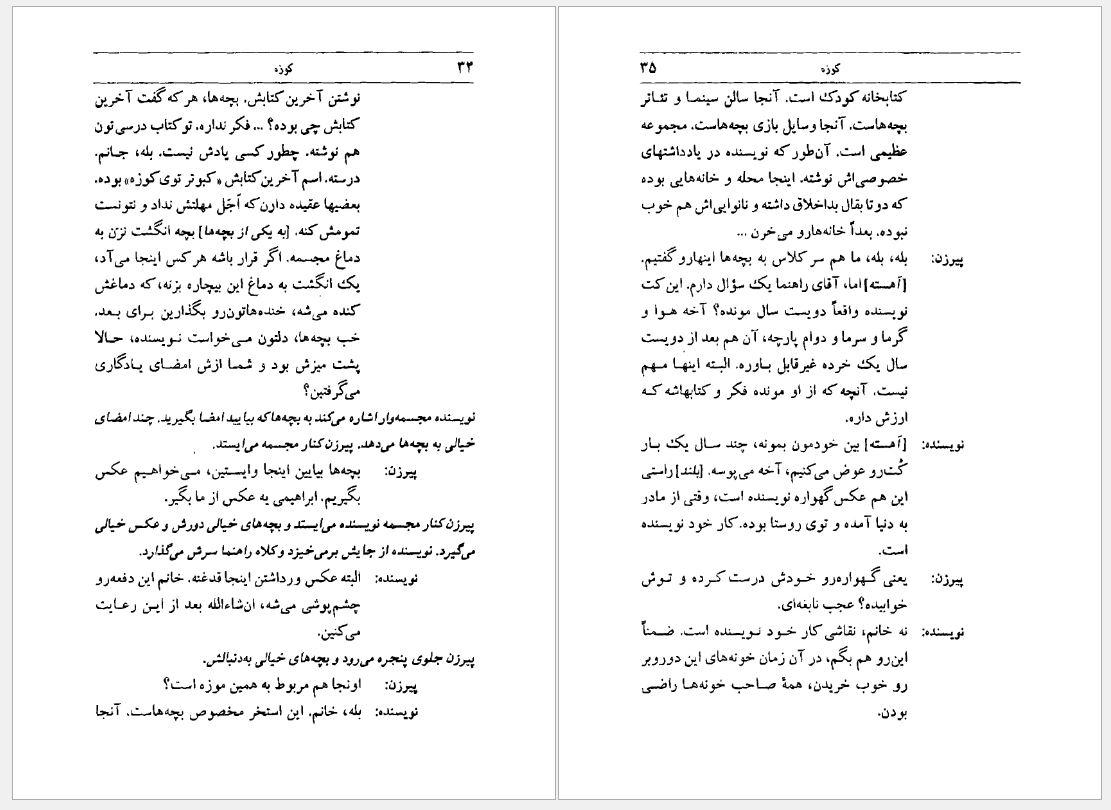 ۳۴ کوزه
نوشتن آخرین کتابش. بچه‌ها، هر که گفت آخرین
کتابش چی بوده؟ ... فکر نداره. تو کتاب درسی‌تون
هم نوشته. چطور کسی یادش نیست. بله، جانم.
درسته. اسم آخرین کتابش «کبوتر توی کوزه» بوده.
بعضیها عقیده دارن که اَجَل مهلتش نداد و نتونست
تمومش کنه. [به یکی از بچه‌ها] بچه انگشت نزن به
دماغ مجسمه. اگر قرار باشه هر کس اینجا می‌آد،
یک انگشت به دماغ این بیچاره بزنه، که دماغش
کنده می‌شه، خنده‌هاتون‌رو بگذارین برای بعد.
خب بچه‌ها، دلتون می‌خواست نویسنده، حالا
پشت میزش بود و شما ازش امضای یادگاری
می‌گرفتین؟
نویسنده مجسمه‌وار اشاره می‌کند به بچه‌ها که بیایید امضا بگیرید. چند امضای
خیالی به بچه‌ها می‌دهد. پیرزن کنار مجسمه می‌ایستد.
پیرزن: بچه‌ها بیایین اینجا وایستین، می‌خواهیم عکس
بگیریم. ابراهیمی یه عکس از ما بگیر.
پیرزن کنار مجسمه نویسنده می‌ایستد و بچه‌های خیالی دورش و عکس خیالی
می‌گیرد. نویسنده از جایش برمی‌خیزد و کلاه راهنما سرش می‌گذارد.
نویسنده: البته عکس ورداشتن اینجا قدغنه. خانم این دفعه‌رو
چشم‌پوشی می‌شه، ان‌شاءالله بعد از این رعایت
می‌کنین.
پیرزن جلوی پنجره می‌رود و بچه‌های خیالی به‌دنبالش.
پیرزن: اونجا هم مربوط به همین موزه است؟
نویسنده: بله، خانم. این استخر مخصوص بچه‌هاست. آنجا
۳۵ کوزه
کتابخانه کودک است. آنجا سالن سینما و تئاتر
بچه‌هاست. آنجا وسایل بازی بچه‌هاست. مجموعه
عظیمی است. آن‌طور که نویسنده در یادداشتهای
خصوصی‌اش نوشته. اینجا محله و خانه‌هایی بوده
که دو تا بقال بداخلاق داشته و نانوایی‌اش هم خوب
نبوده. بعداً خانه‌هارو می‌خرن ...
پیرزن: بله، بله، ما هم سر کلاس به بچه‌ها اینهارو گفتیم.
[آهسته] اما، آقای راهنما یک سؤال دارم. این کت
نویسنده واقعاً دویست سال مونده؟ آخه هوا و
گرما و سرما و دوام پارچه، آن هم بعد از دویست
سال یک خرده غیرقابل باوره. البته اینها مهم
نیست. آنچه که از او مونده فکر و کتابهاشه که
ارزش داره.
نویسنده: [آهسته] بین خودمون بمونه، چند سال یک بار
کُت‌رو عوض می‌کنیم، آخه می‌پوسه. [بلند] راستی
این هم عکس گهواره نویسنده است، وقتی از مادر
به دنیا آمده و توی روستا بوده. کار خود نویسنده
است.
پیرزن: یعنی گهواره‌رو خودش درست کرده و توش
خوابیده؟ عجب نابغه‌ای.
نویسنده: نه خانم، نقاشی کار خود نویسنده است. ضمناً
این‌رو هم بگم، در آن زمان خونه‌های این دوروبر
رو خوب خریدن، همهٔ صاحب خونه‌ها راضی
بودن.